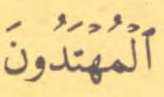 ٱلْمُهْتَدُونَ